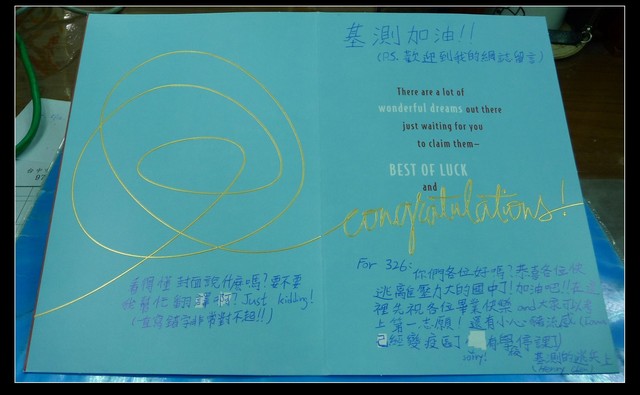 基測加油!!
(P.S. 歡迎到我的網誌留言)
There are a lot of
wonderful dreams out there
just waiting for you
to claim them—
BEST OF LUCK
and
congratulations!
看得懂封面說什麼嗎?要不要
我幫忙翻譯啊? Just kidding!
(一直寫錯字非常對不起!!)
For 326:
你們各位好嗎?恭喜各位快
逃離壓力大的國中了!加油吧!!在這
裡先祝各位畢業快樂 and 大家可以考
上第一志願!還有小心豬流感
已經變疫區了 有學校停課)
sorry!